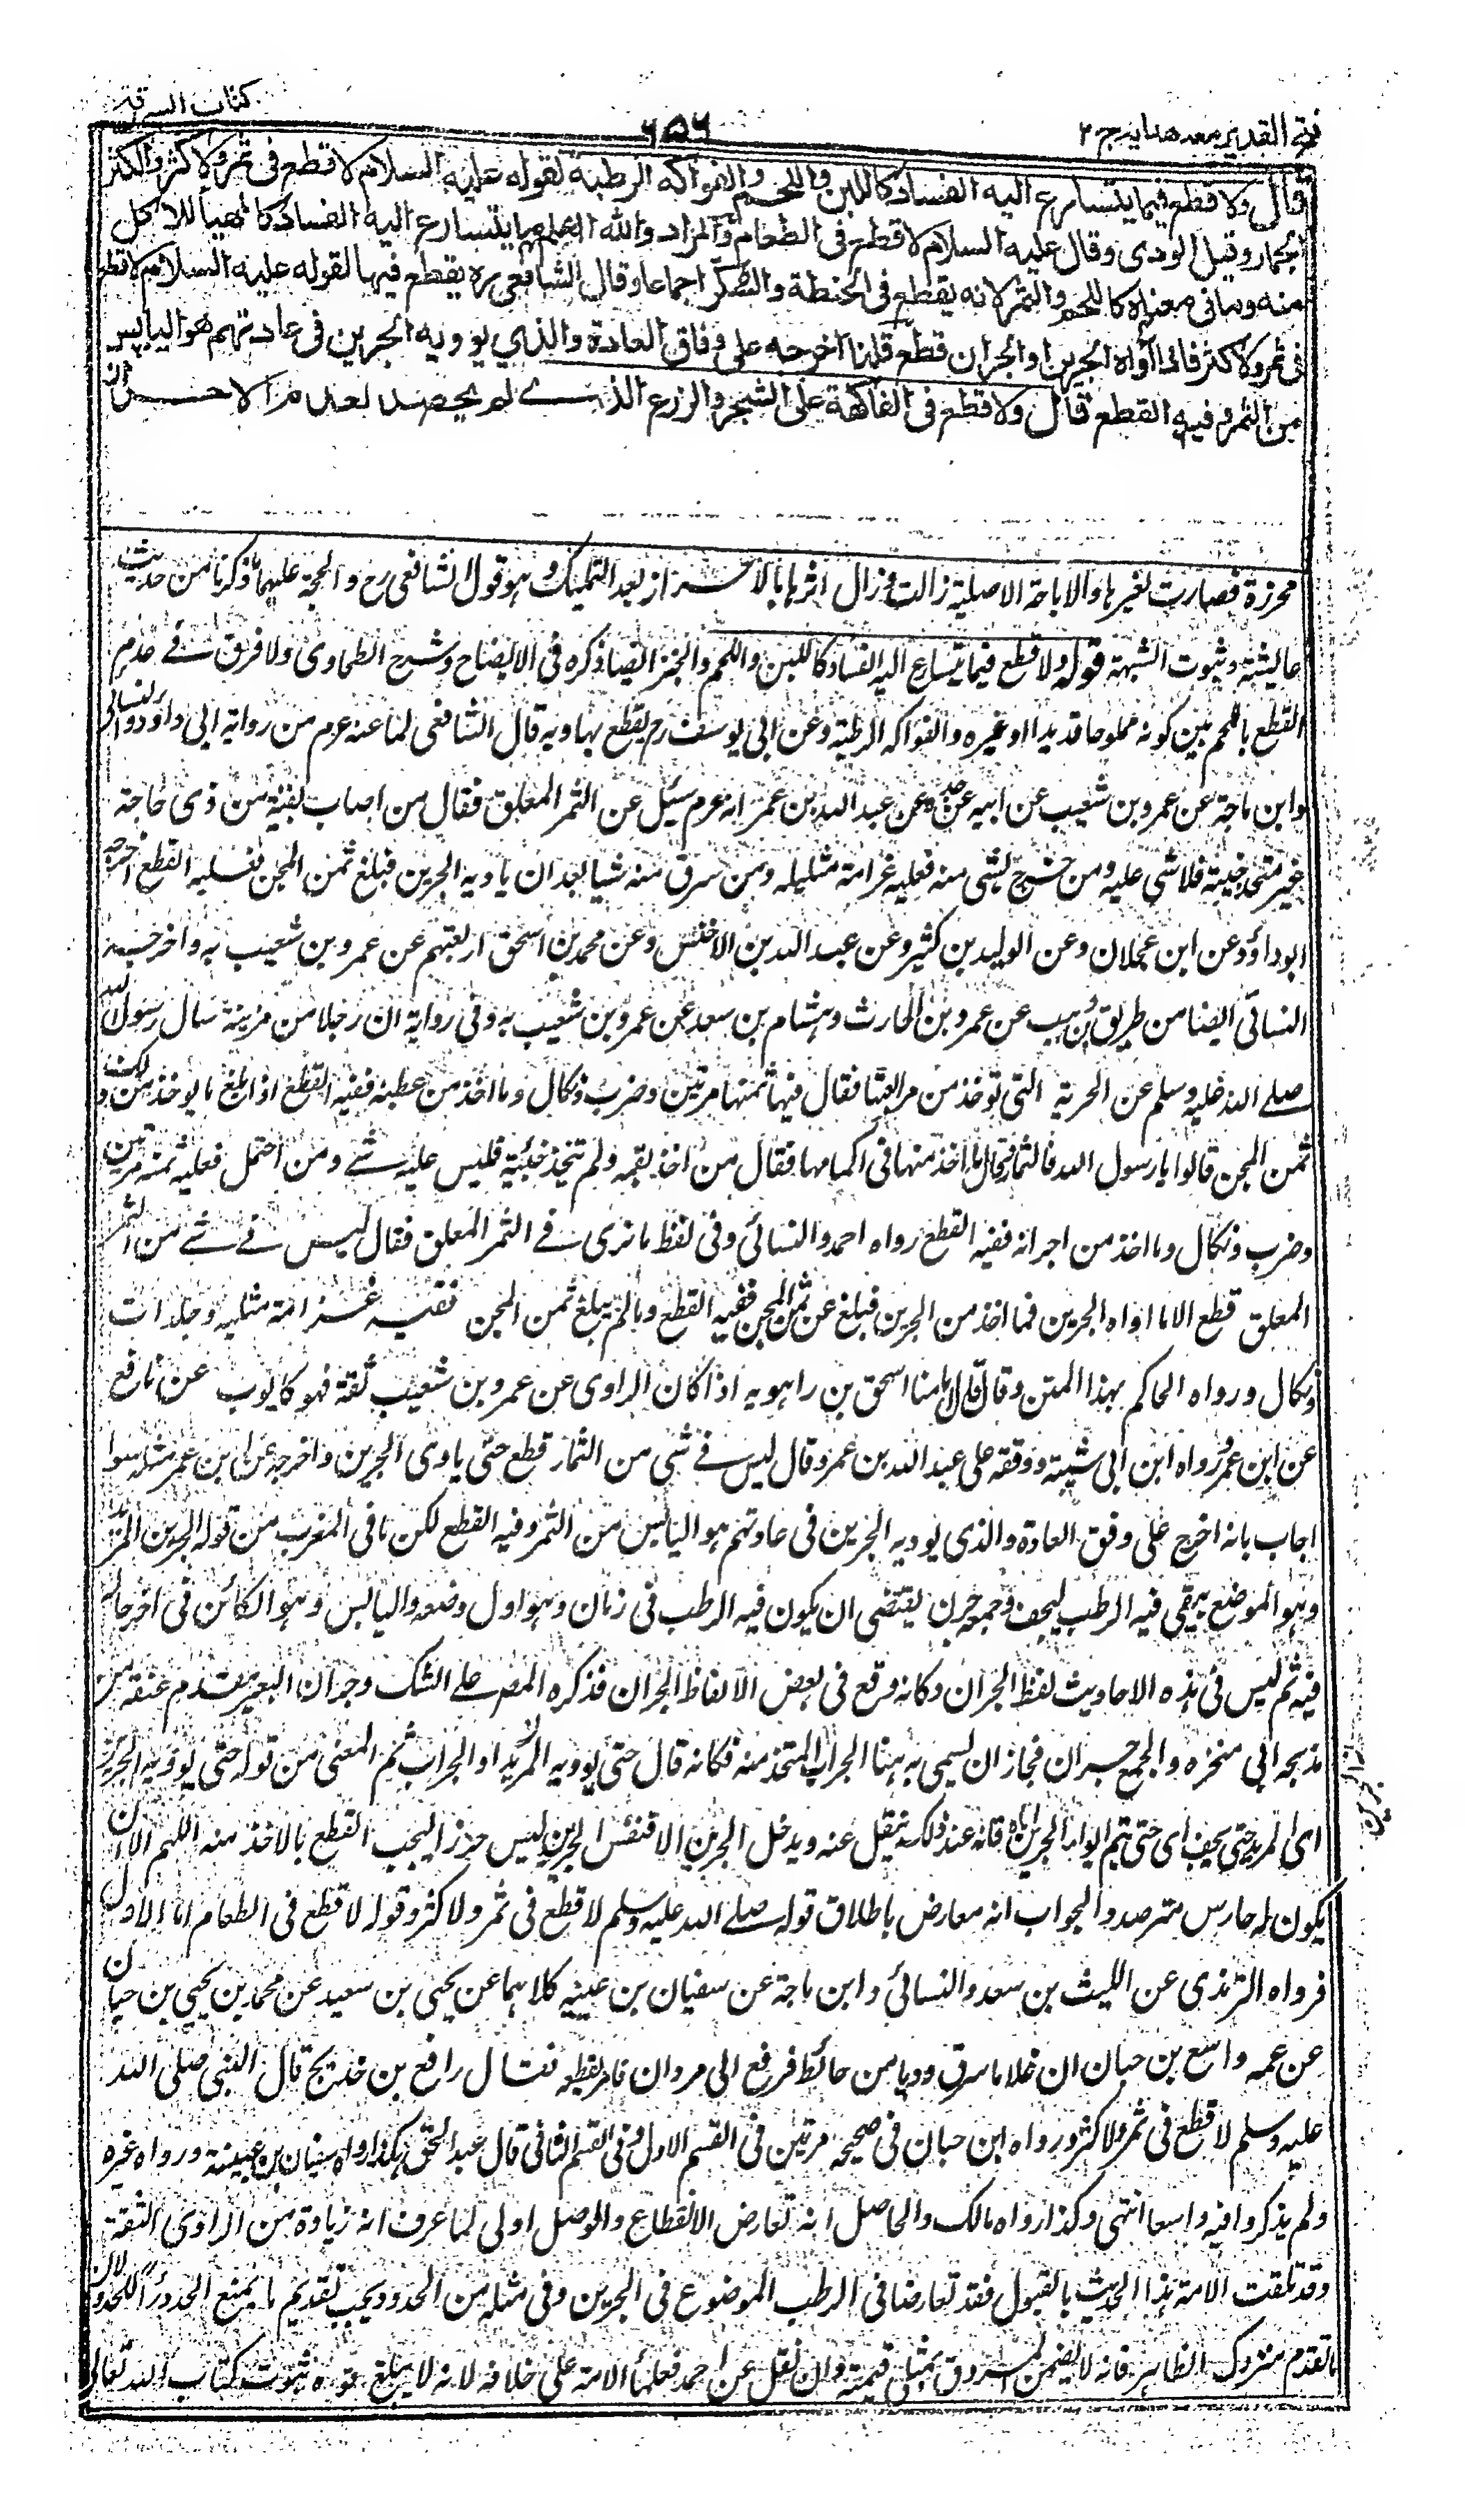 فتح القدير مع هدايه ج ٢
٦٥٦
كتاب السرقة
قال ولا قطع فيما يتسارع اليه الفساد كاللبن واللحم والفواكه الرطبة لقوله عليه السلام لا قطع فى ثمر ولا كثر والكثر
الجمار وقيل الودى وقال عليه السلام لا قطع فى الطعام والمراد والله اعلم ما يتسارع اليه الفساد كالمهيأ للاكل
منه وما فى معناه كاللحم والثمر لانه يقطع فى الحنطة والسكر اجماعا وقال الشافعى ره يقطع فيها لقوله عليه السلام لا قطع
فى ثمر ولا كثر فاذا آواه الجرين او الجران قطع قلنا اخرجه على وفاق العادة والذي يوويه الجرين فى عادتهم هو اليابس
من الثمر وفيه القطع قال ولا قطع فى الفاكهة على الشجر والزرع الذى لم يحصد لعدم الاحراز
محرزة فصارت لغيرها والاباحة الاصلية زالت وزال اثرها بالاحراز بعد التمليك وهو قول الشافعى رح والحجة عليهما ما ذكرنا من حديث
عايشة وثبوت الشبهة قوله ولا قطع فيما يتسارع اليه الفساد كاللبن واللحم والخبز ايضا ذكره فى الايضاح وشرح الطحاوى ولا فرق فى عدم
القطع باللحم بين كونه مملوحا قديدا او غيره والفواكه الرطبة وعن ابى يوسف رح يقطع بها وبه قال الشافعى لما عنه عم من رواية ابى داود والنسائى
وابن ماجة عن عمرو بن شعيب عن ابيه عن جده عن عبد الله بن عمر انه عم سئل عن الثمر المعلق فقال من اصاب بفيه من ذى حاجة
غير متخذ خبنة فلا شئ عليه ومن خرج بشئ منه فعليه غرامة مثليه ومن سرق منه شيا بعد ان ياويه الجرين فبلغ ثمن المجن فعليه القطع اخرجه
ابو داؤد عن ابن عجلان وعن الوليد بن كثير وعن عبد الله بن الاخنس وعن محمد بن اسحق اربعتهم عن عمرو بن شعيب به واخرجه
النسائى ايضا من طريق وهب عن عمرو بن الحارث وهشام بن سعد عن عمرو بن شعيب به وفى رواية ان رجلا من مزينة سال رسول الله
صلے الله عليه وسلم عن الحريسة التى توخذ من مراتعها فقال فيها ثمنها مرتين وضرب ونكال وما اخذ من عطنه ففيه القطع اذا بلغ ما يوخذ من ذلك
ثمن المجن قالوا يا رسول الله فالثمار وما اخذ منها فى اكمامها فقال من اخذ بفمه ولم يتخذ خبنة فليس عليه شے ومن احتمل فعليه ثمنه مرتين
وضرب ونكال وما اخذ من اجرانه ففيه القطع رواه احمد والنسائى وفى لفظ ما ترى فے الثمر المعلق فقال ليس فے شے من الثمر
المعلق قطع الا ما اواه الجرين فما اخذ من الجرين فبلغ ثمن المجن ففيه القطع وما لم يبلغ ثمن المجن ففيه غرامة مثليه وجلدات
ونكال ورواه الحاكم بهذا المتن وقال قال امامنا اسحق بن راهويه اذا كان الراوى عن عمرو بن شعيب ثقة فهو كايوب عن نافع
عن ابن عمر ورواه ابن ابى شيبة ووقفه على عبد الله بن عمرو قال ليس فے شئ من الثمار قطع حتى ياوى الجرين واخرجه عن ابن عمر مثله سوا
اجاب بانه اخرج على وفق العادة والذى يوديه الجرين فى عادتهم هو اليابس من الثمر وفيه القطع لكن ما فى المغرب من قوله الجرين المربد
وهو الموضع يبقى فيه الرطب ليجف وجمعه جرن يقتضى ان يكون فيه الرطب فى زمان وهو اول وضعه واليابس وهو الكائن فى اخر حاله
فيه ثم ليس فى هذه الاحاديث لفظ الجران وكانه وقع فى بعض الالفاظ الجران فذكره المصم على الشك وجران البعير مقدم عنقه من
مذبحه الى منخره والجمع جرن فجاز ان يسمى به هنا الجراب المتخذ منه فكانه قال حتى يوويه المربد او الجراب ثم المعنى من قوله حتى يوويه الجرين
اى المربد حتى يجف اى حتى يتم ايواء الجرين اياه فانه عند ذلك ينقل عنه ويدخل الحرز والا فنفس الجرين ليس حرزا ليجب القطع بالاخذ منه اللهم الا ان
يكون له حارس مترصد والجواب انه معارض باطلاق قوله صلے الله عليه وسلم لا قطع فى ثمر ولا كثر وقوله لا قطع فى الطعام اما الاول
فرواه الترمذى عن الليث بن سعد والنسائى وابن ماجة عن سفيان بن عيينه كلاهما عن يحيى بن سعيد عن محمد بن يحيى بن حبان
عن عمه واسع بن حبان ان غلاما سرق وديا من حائط فرفع الى مروان فامر بقطعه فقال رافع بن خديج قال النبى صلى الله
عليه وسلم لا قطع فى ثمر ولا كثر ورواه ابن حبان فى صحيحه مرتين فى القسم الاول وفى القسم الثانى قال عبد الحق هكذا رواه سفيان بن عيينة ورواه غيره
ولم يذكروا فيه واسعا انتهى وكذا رواه مالك والحاصل انه تعارض الانقطاع والوصل والوصل اولى لما عرف انه زيادة من الراوى الثقة
وقد تلقت الامة هذا الحديث بالقبول فقد تعارضا فى الرطب الموضوع فى الجرين وفى مثله من الحدود يجب تقديم ما يمنع الحد درءا للحد ولان
ما تقدم متروك الظاهر فانه لا يضمن المسروق بمثلى قيمته وان نقل عن احمد فعلماء الامة على خلافه لانه لا يبلغ قوة ثبوت كتاب الله تعالى